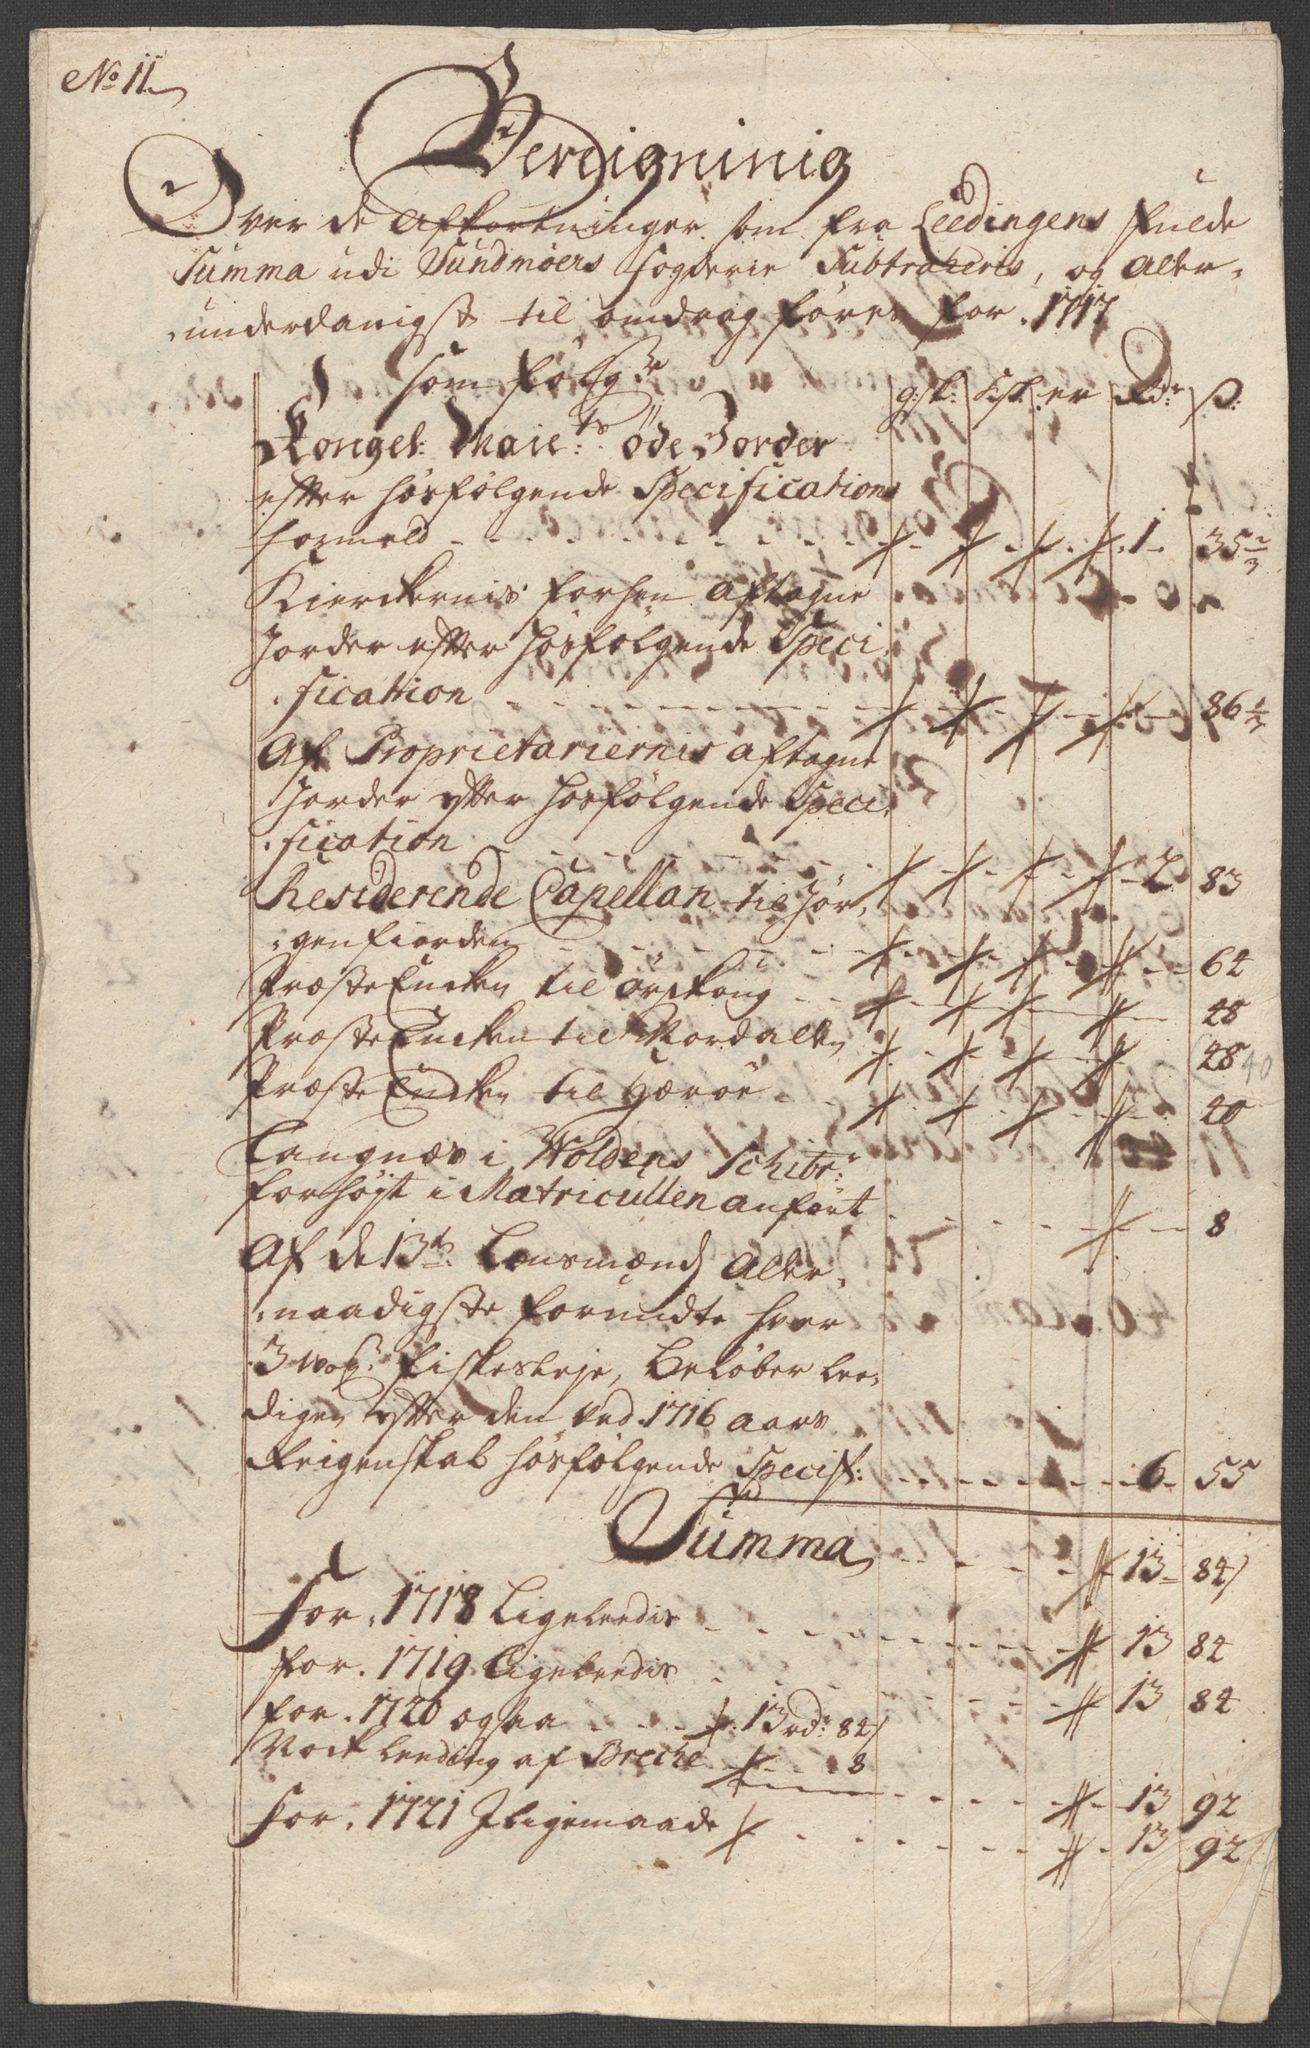 No 11
Bereigninig
Over de Afkortninger som fra Leedingens fulde
Summa udi Sundmøers fogderie Subtraheris, og aller-
underdanigst til omdrag føres for 1717
som følger
g: sk: Kl: er Rdr ß:
Kongel: Maiets øde Jorder
efter hosfølgende Specifications
formeld 1 35 2/3
Kierckernis forhen aftagne
Jorder efter hosfølgende Speci
fication 86 1/3
Af Proprietariernis aftagne
Jorder efter hosfølgende Speci
fication 2 83
Residerende Capellan til Jør-
genfiorden 64
Præste Encken til Ørskoug 48
Præste Encken til Nordalen 48 40
Præste Encken til Herøe 40
Langnæs i Woldens Schibr:
forhøjt i Matricullen anført 8
Af de 13de Lensmænd Aller-
naadigste forundte hver
3 wog: fiskesleje, beløber lee-
digen efter den ved 1716 aars
Reigenskab hosfølgende Specif: 6 55
Summa 13 84
For 1718 Ligeleedis 13 84
for 1719 Ligeleedis 13 84
for 1720 ogsaa 13 rdr 84
Nock leeding af Breche 8
13 92
For 1721 Jligemaade 13 92